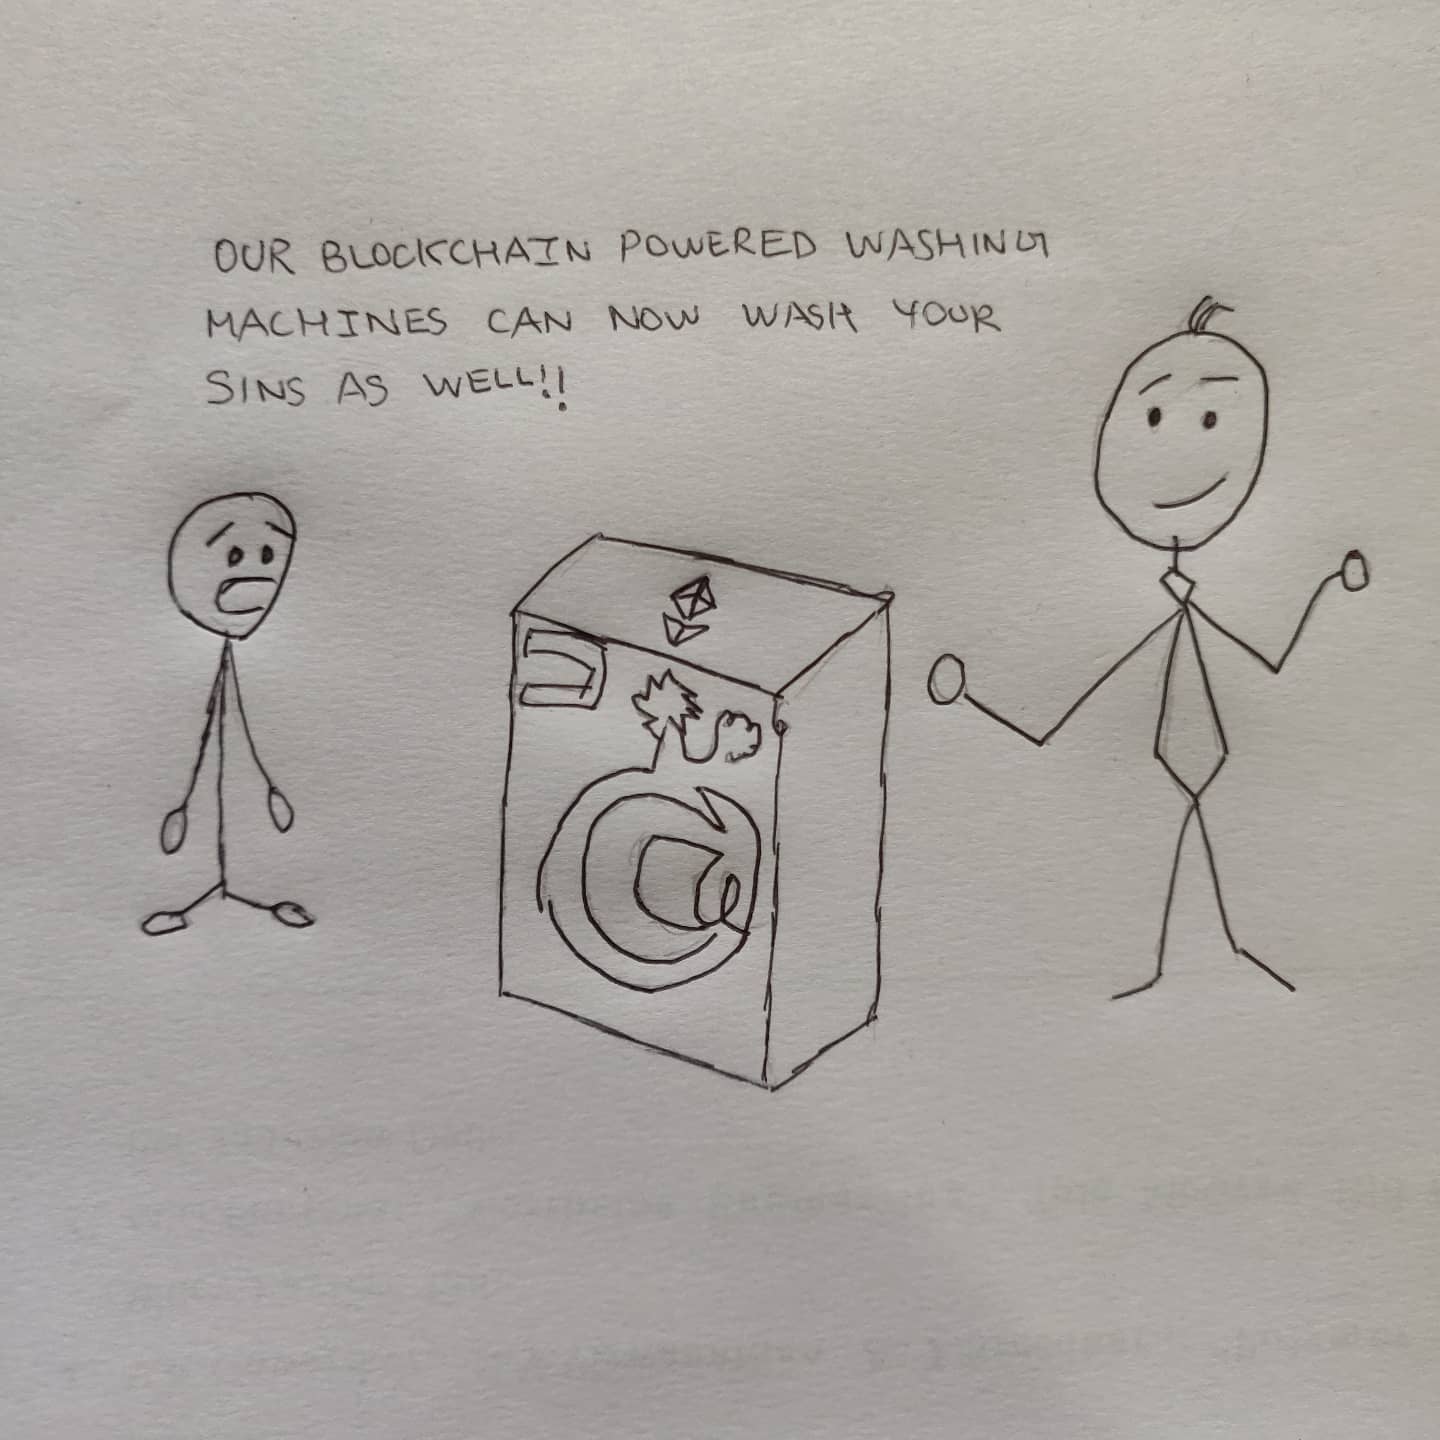 OUR BLOCKCHAIN POWERED WASHING
MACHINES CAN NOW WASH YOUR
SINS AS WELL!!